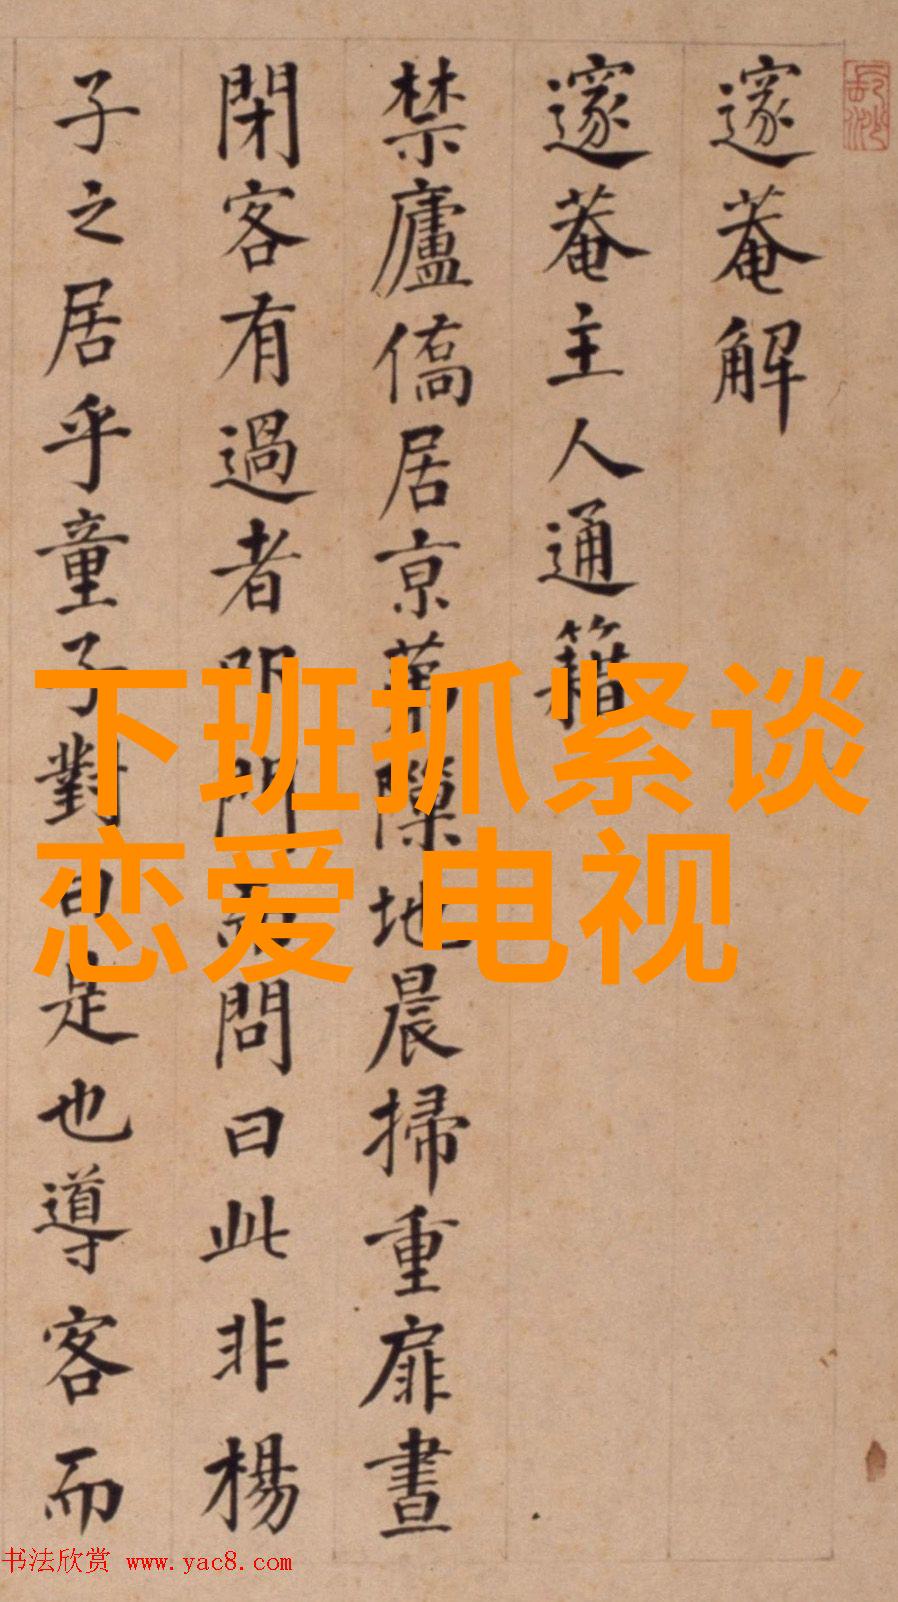 邃菴解
邃菴主人通籍
禁廬僑居京第隙地晨掃重扉晝
閉客有過者叩門而問曰此非楊
子之居乎童子對曰是也導客而
下班抓紧谈
恋爱 电视
书法欣赏 www.yac8.com